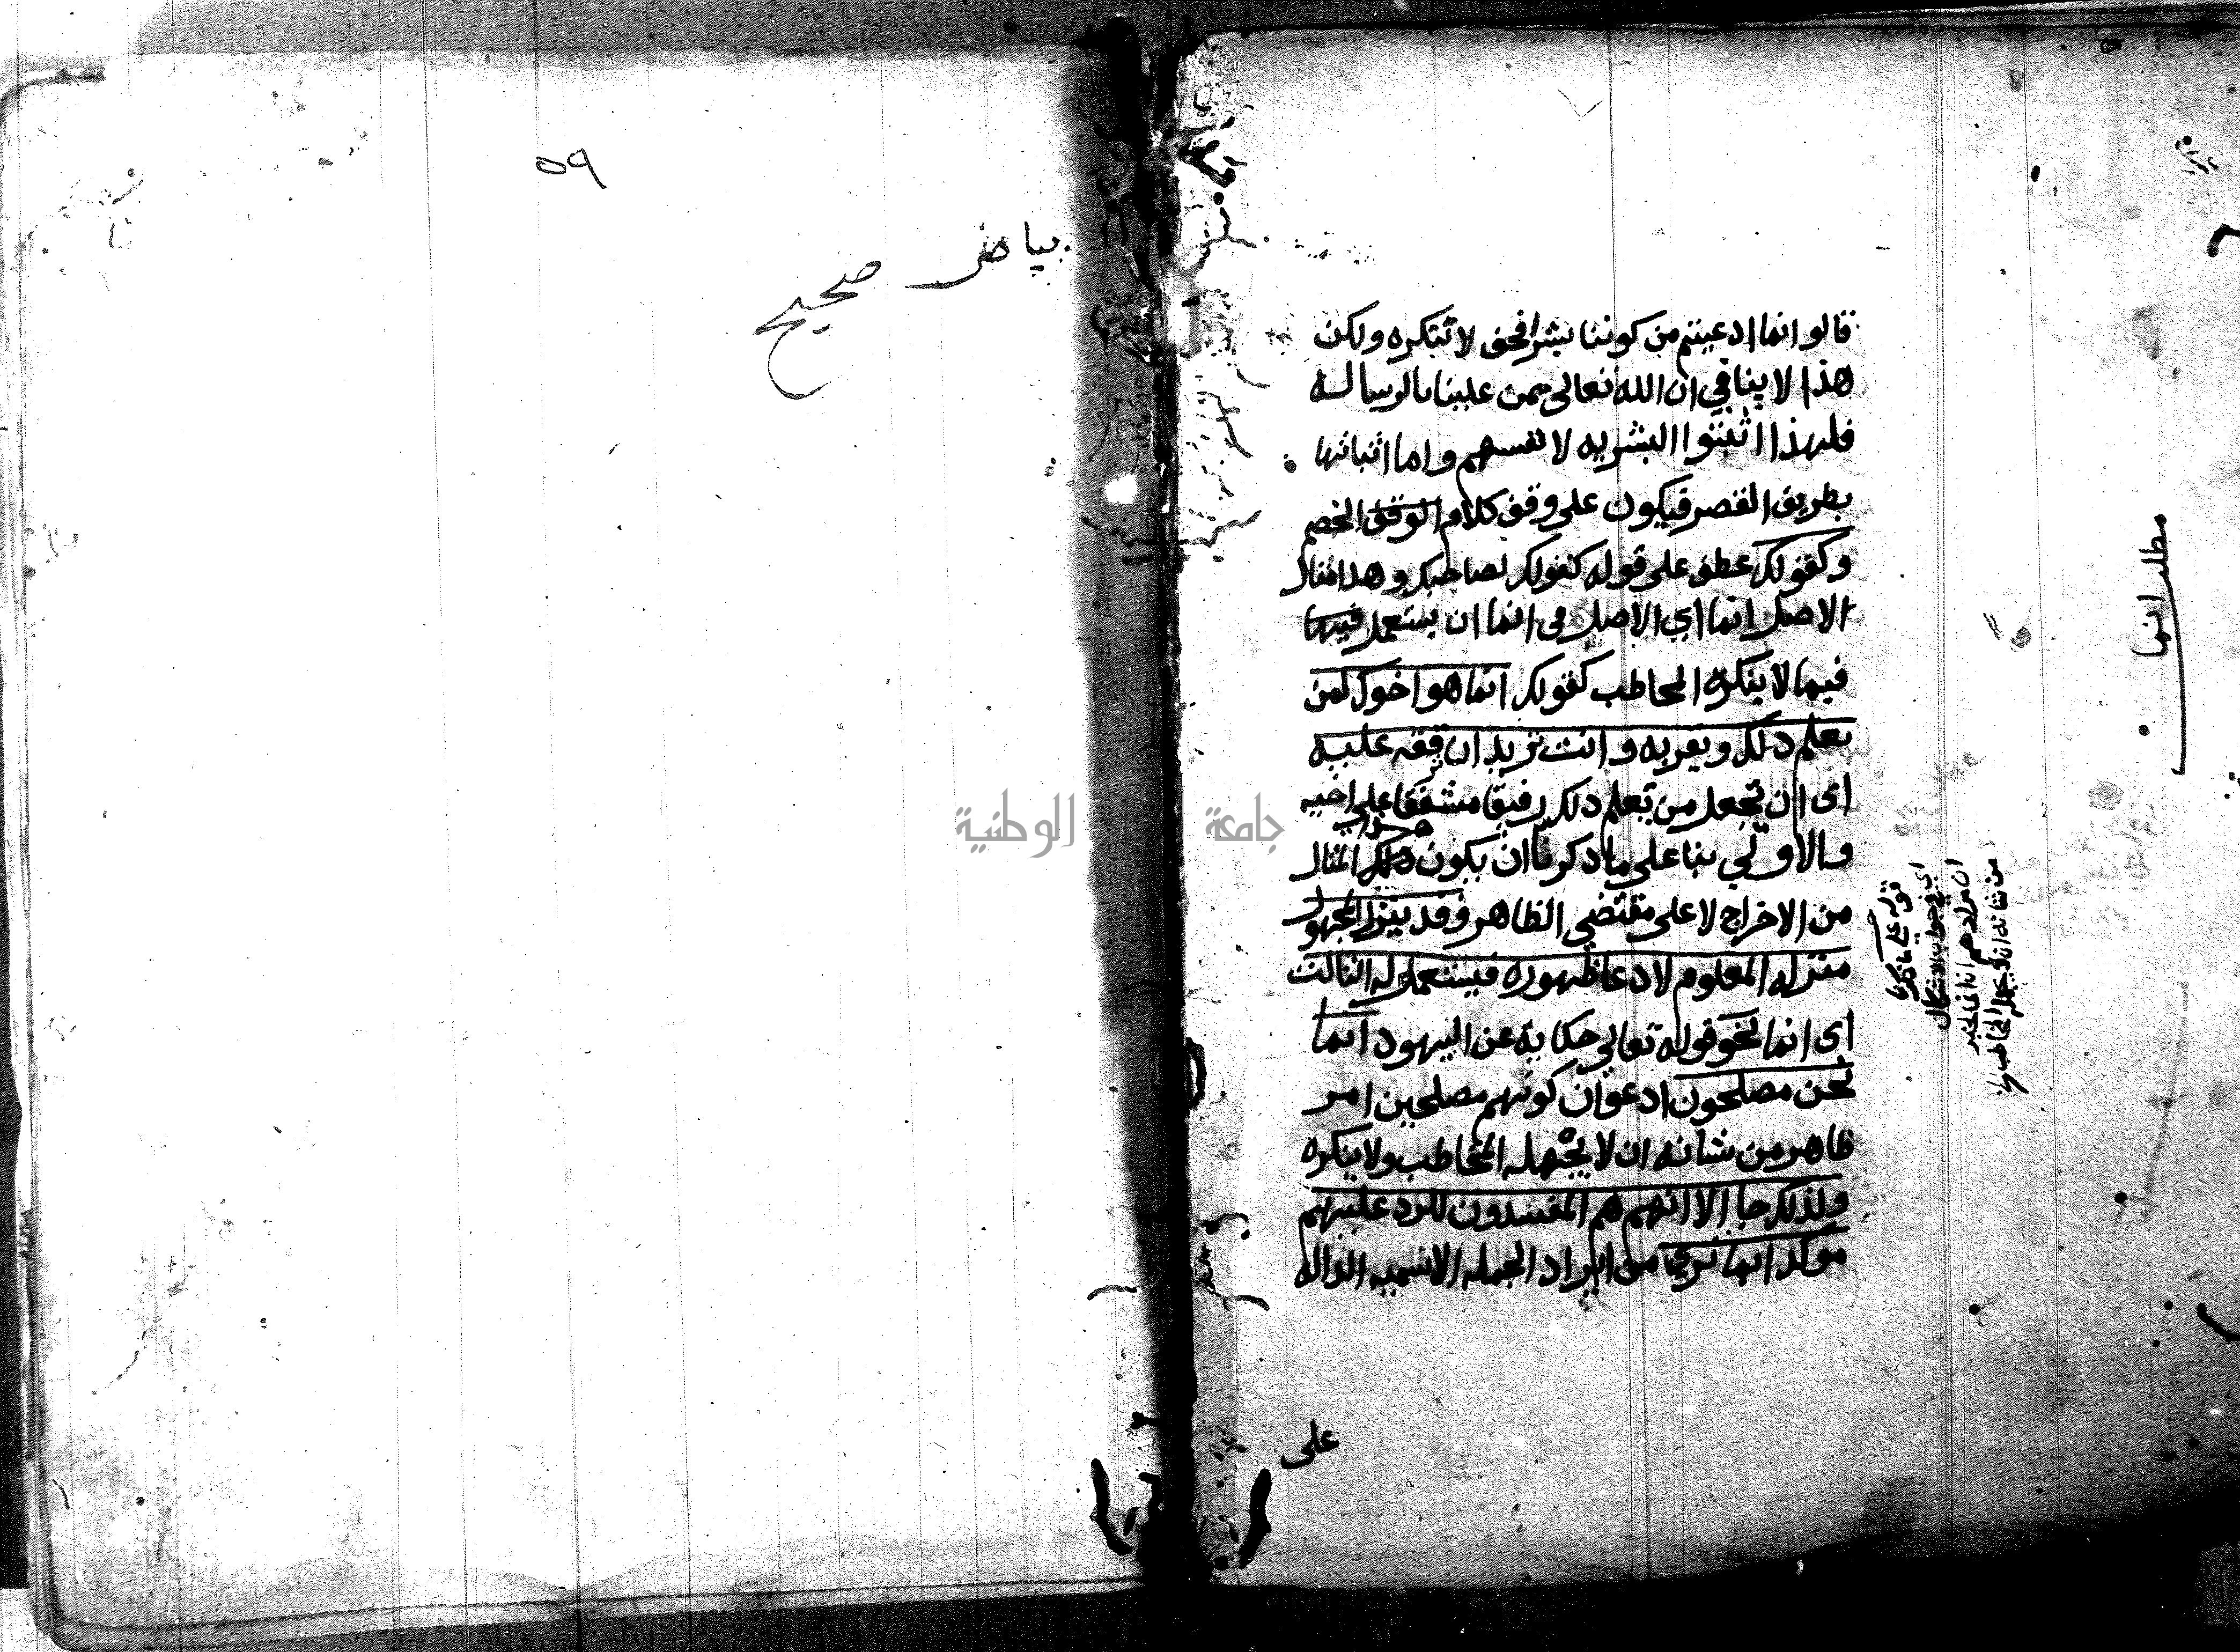 قالوا انما ادعيتم من كوننا بشرا فحق لا ننكره ولكن
هذا لا ينافي ان الله تعالى يمن علينا بالرسالة
فلهذا اثبتوا البشريه لانفسهم واما اثباتها
بطريق القصر فيكون على وفق كلام الخصم
وكقولك عطف على قوله كقولك لصاحبك وهذا مثال
الاصل انما اي الاصل في انما ان يستعمل فيها
فيما لا ينكره المخاطب كقولك انما هو اخوك لمن
يعلم ذلك ويقر به وانت تريد ان ترققه عليه
اى ان تجعل من يعلم ذلك رفيقا مشفقا على اخيه
والاولي بنا على ما ذكرنا ان يكون هذا المثال
من الاخراج لا على مقتضي الظاهر وقد ينزل المجهول
منزله المعلوم لادعا ظهوره فيستعمل له الثالث
اى انما نحو قوله تعالي حكاية عن اليهود انما
نحن مصلحون ادعوا ان كونهم مصلحين امر
ظاهر من شانه ان لا يجهله المخاطب ولا ينكره
ولذلك جا الا انهم هم المفسدون للرد عليهم
موكد ابما ترى من ايراد الجمله الاسميه الداله
على
مطلب انما
قوله على ما ذكرنا
اي في جواب الاشكال
ان مرادهم ان انما لخبر
من شانه ان لا يجهله المخاطب
٥٩
بياض صحيح
جامعة الوطنية